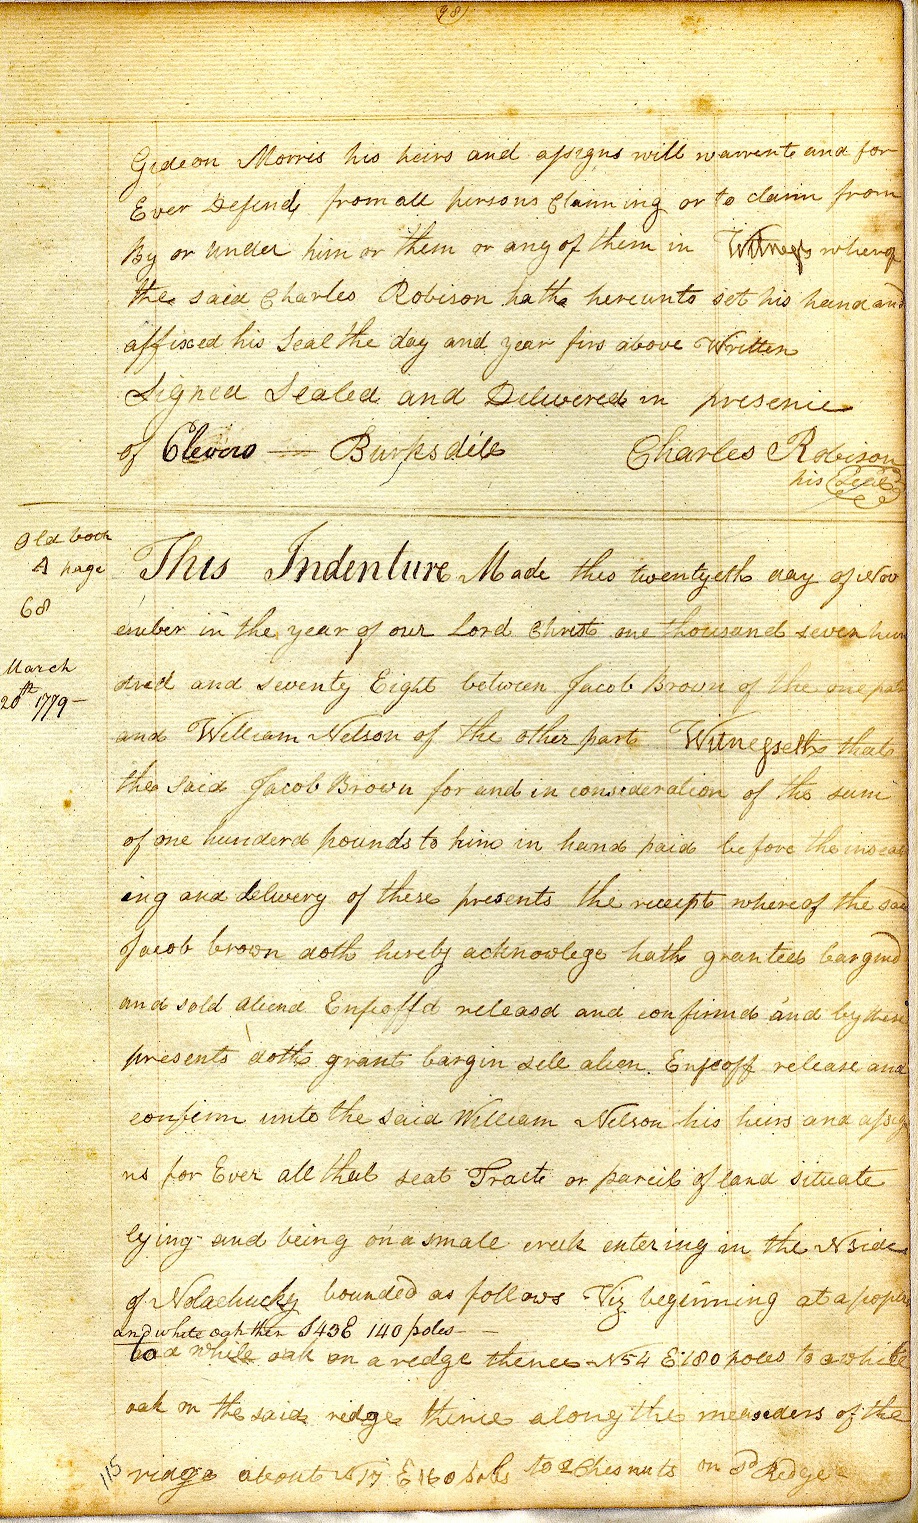 98
Gideon Morris his heirs and assigns will warrent and for
Ever Defend from all persons Claiming or to claim from
By or under him or them or any of them in Witness wherof
the said Charles Robison hath hereunto set his hand and
affixed his Seal the day and year firs above Written
Signed Sealed and Delivered in presence
of Clevers — Burksdile Charles Robison
his Seal
Old book
A page
68
March
20th 1779 -
This Indenture Made this twentyeth day of Nov
ember in the year of our Lord Christ one thousand seven hun
dred and seventy Eight between Jacob Brown of the one part
and William Nelson of the other part Witnesseth that
the said Jacob Brown for and in consideration of the sum
of one hunderd pounds to him in hand paid before the inseal
ing and delivery of these presents the receipt whereof the said
Jacob brown doth hereby acknowlege hath granted bargind
and sold aliend Enfeoff'd releasd and confirmd and by these
presents doth grant bargin sell alien Enfeoff release and
confirm unto the said William Nelson his heirs and assig
ns for Ever all that seat Tract or parcel of land situate
lying and being on a small creek entering in the N side
of Nolachucky bounded as follows Viz beginning at a popler
and white oak then S43E 140 poles -
to a white oak on a redge thence N54 E 180 poles to a white
oak on the said redge thence along the meanders of the
ridge about N17 E 160 poles to 2 Chesnuts on sd Redge -
115